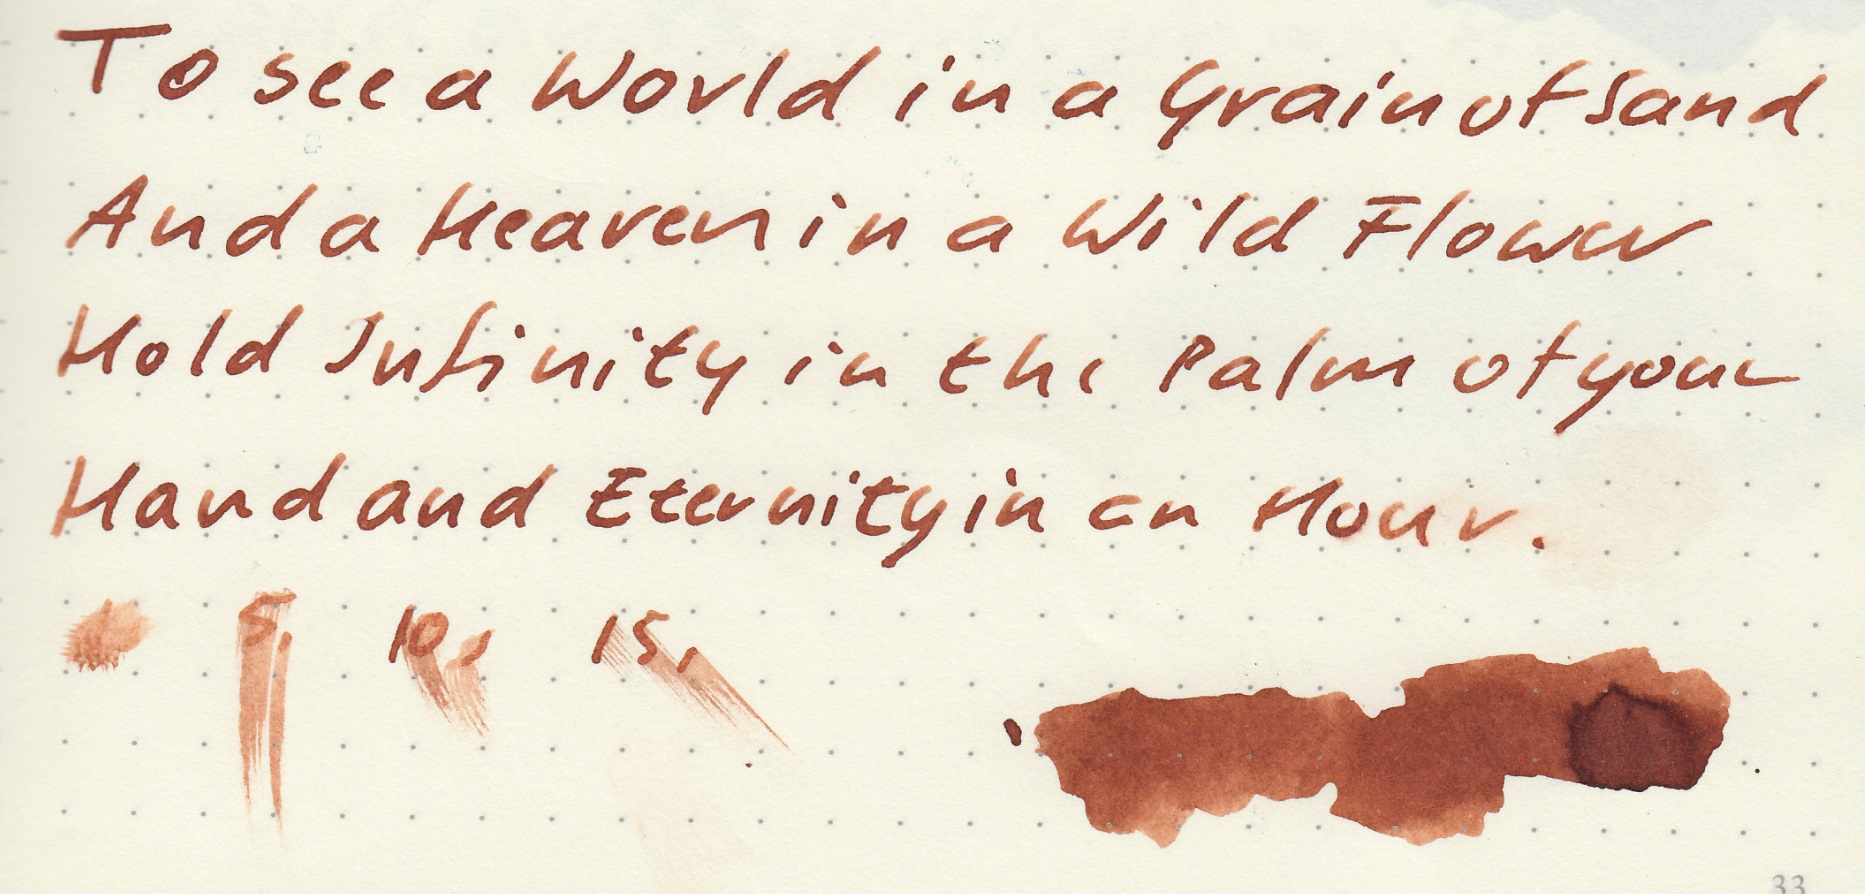 To see a World in a Grain of Sand
And a Heaven in a Wild Flower
Hold Infinity in the Palm of your
Hand and Eternity in an Hour.
5, 10, 15,
33